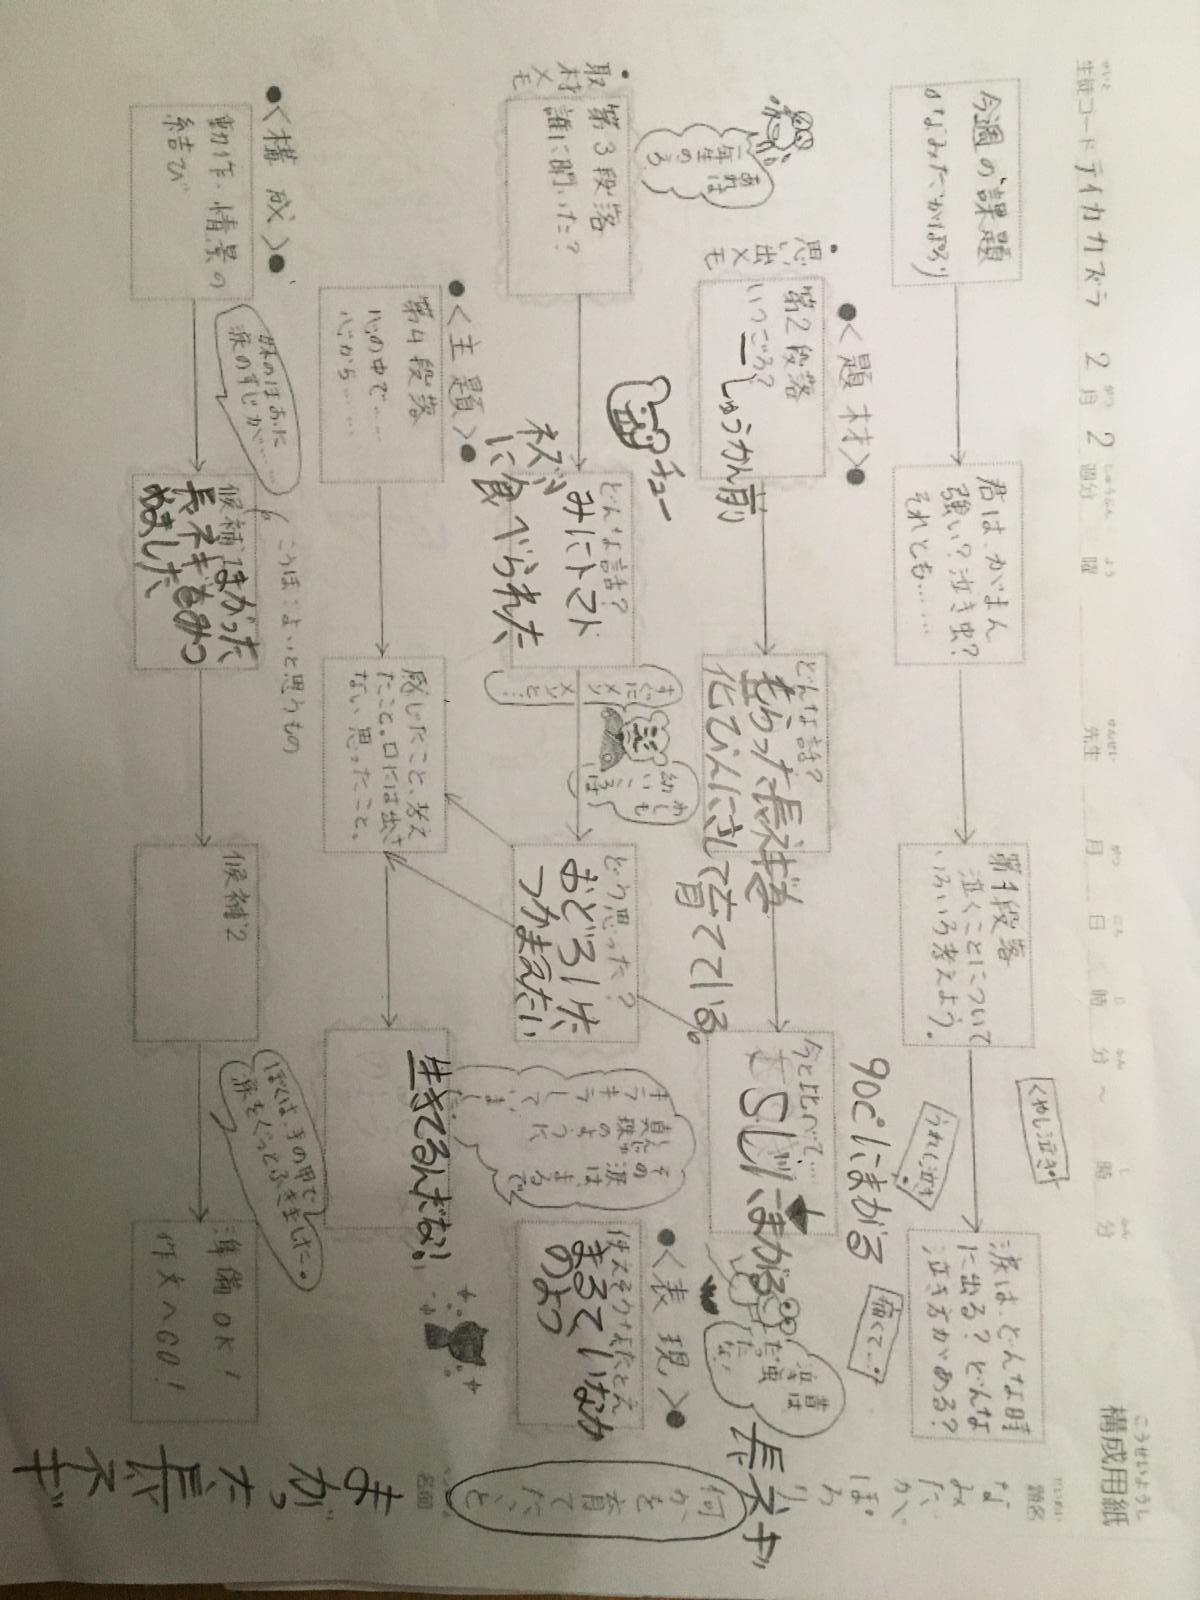 構成用紙
こうせいようし
生徒コード テイカカズラ 2月2週分 曜 先生 月 日 時 分 ~ 時 分
題名
なみだがぽろり
何かを育てたこと
長ネギ
名前
まがった長ネギ
今週の課題
"なみだがぽろり"
君は、がまん
強い?泣き虫?
それとも……
第1段落
泣くことについて
いろいろ考えよう。
くやし泣き
うれし泣き
痛くて…
涙は、どんな時
に出る?どんな
泣き方がある?
●<題材>●
・思い出メモ
第2段落
いつごろ?
一しゅうかん前
どんな話?
もらった長ネギを
花びんにさして育てている。
今と比べて……
90c°にまがる
まがる
昔は
泣き虫
だった
なぁ
・取材メモ
第3段落
誰に聞いた?
あれは
一年生の
ころ
チュー
どんな話?
みにトマト
ネズミ
に食べられた
すぐに
メソ
メソと…
わしも
幼い
ころは
どう思った?
おどろいた
つかまえたい
●<表現>●
使えそうなたとえ
まるでいなか
のよう
その涙は、まるで
真じゅのように
キラキラしていました
●<主題>●
第4段落
心の中で……
心から……
感じたこと、考え
たこと。口には出さ
ない思ったこと。
生きてるんだな!
●<構成>●
動作、情景の
結び
妹のほおに
涙のすじが……
こうほ:よいと思うもの
候補1
まがった
長ネギをみつ
めました
候補2
ぼくは、手の甲で
涙をぐっとふきました。
準備OK!
作文へGO!